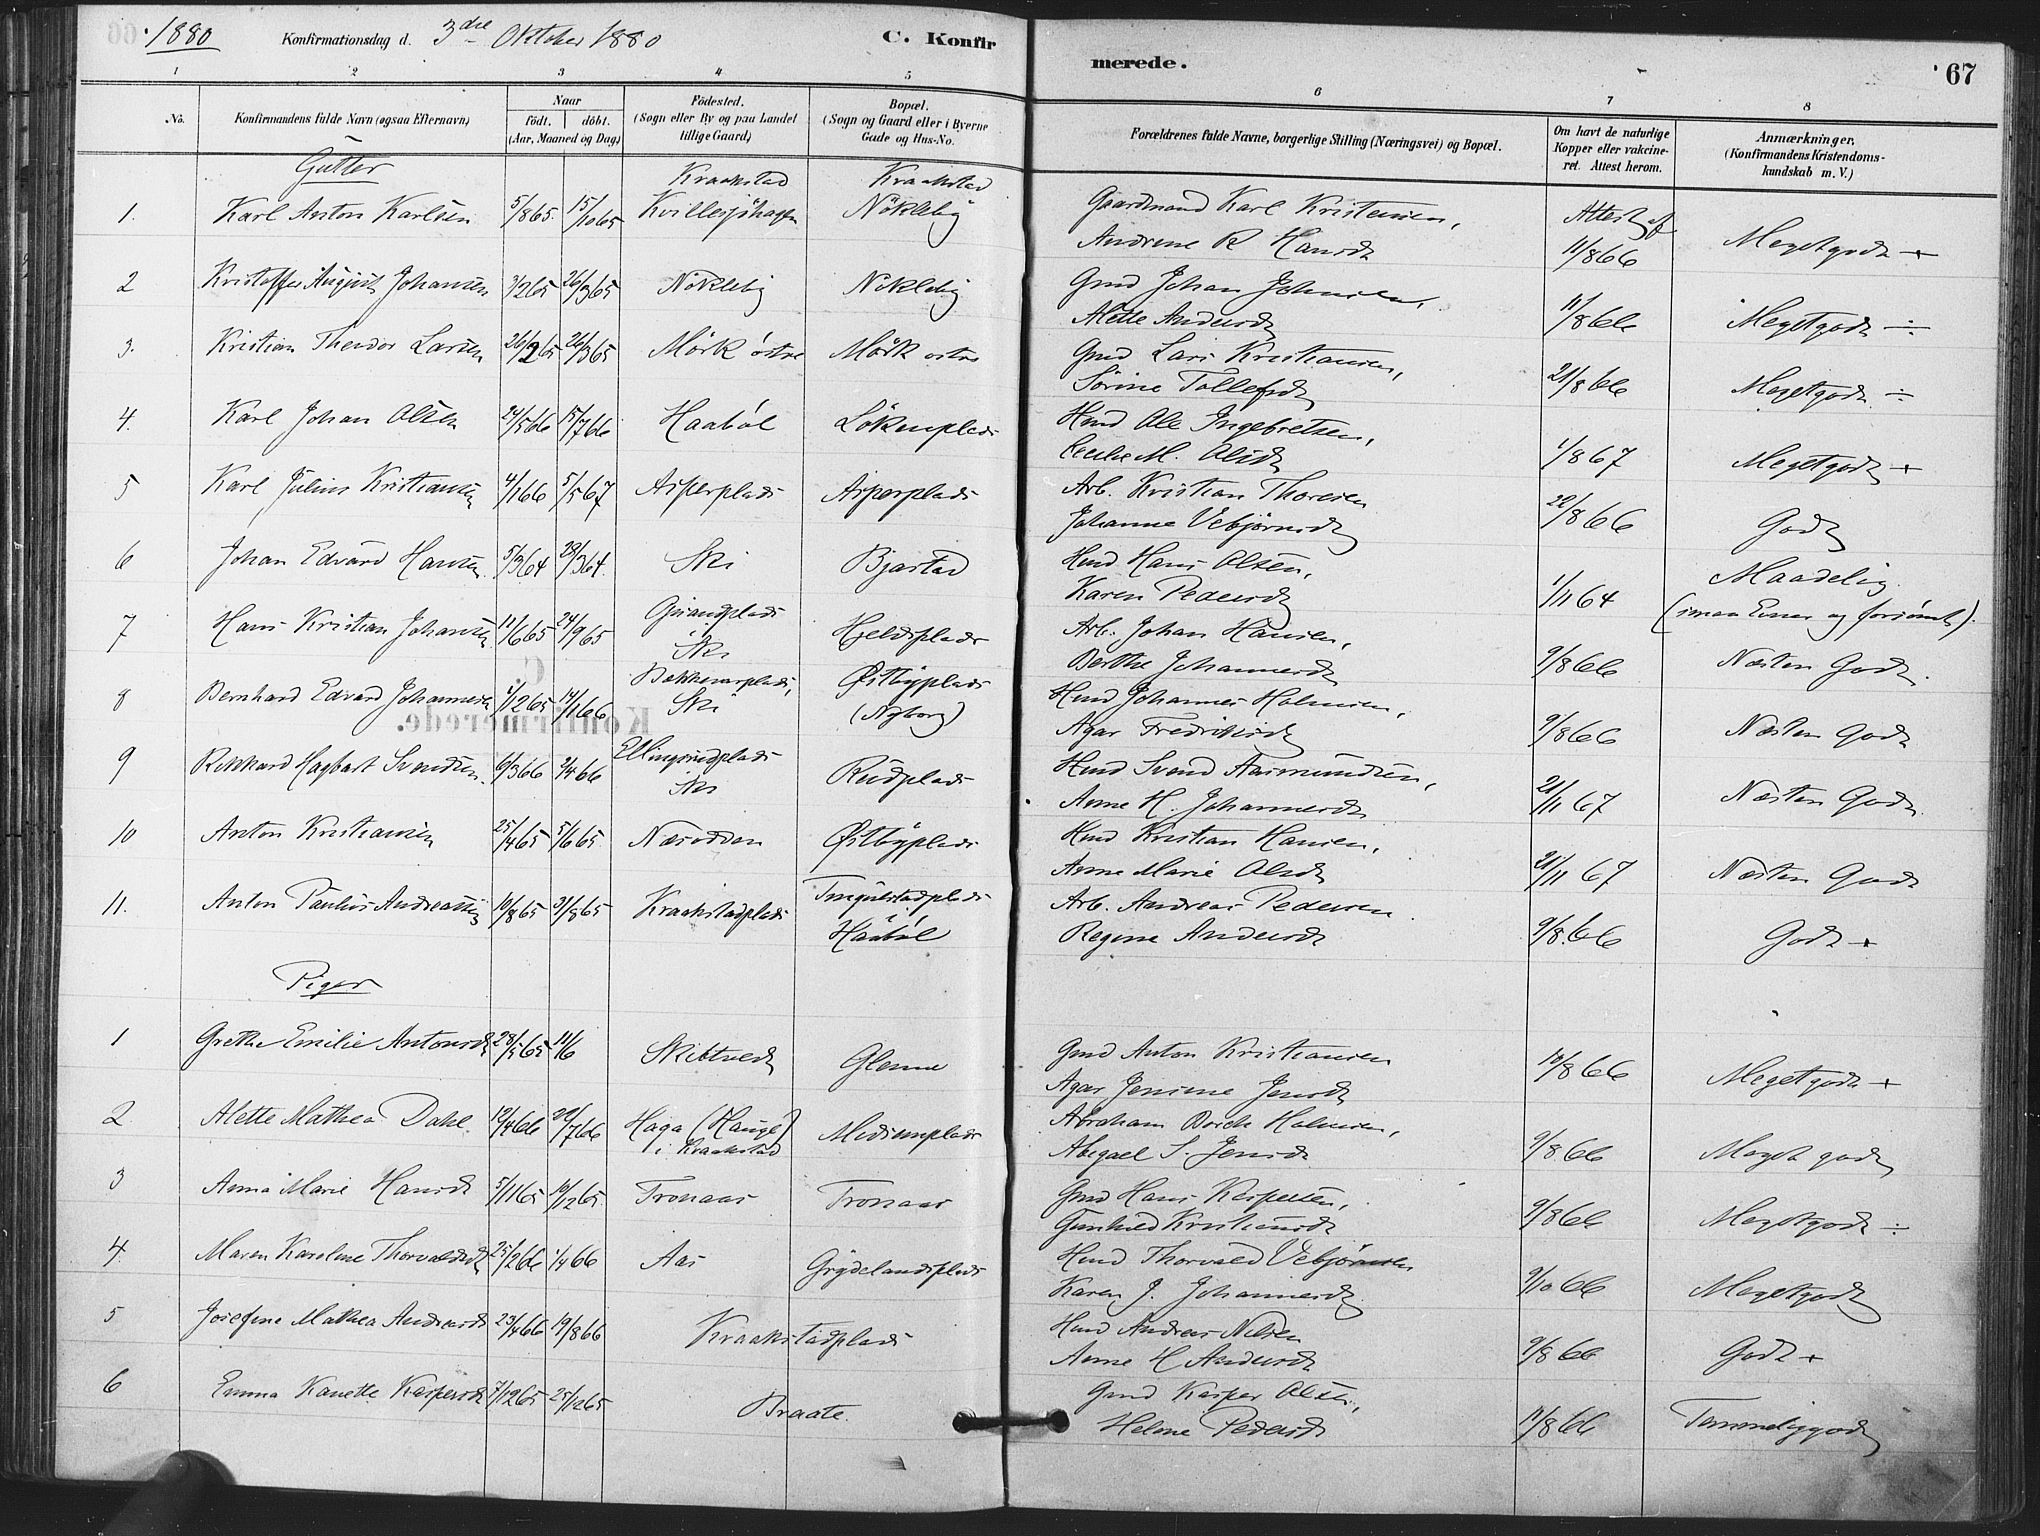 1880 Konfirmationsdag d. 3die Oktober 1880 C. Konfirmerede. 67
1 2 3 4 5 6 7 8
No. Konfirmandens fulde Navn (ogsaa Efternavn) Naar født. døbt. (Aar, Maaned og Dag) Fødested. (Sogn eller By og paa Landet tillige Gaard) Bopæl. (Sogn og Gaard eller i Byerne Gade og Hus-No. Forældrenes fulde Navne, borgerlige Stilling (Næringsvei) og Bopæl. Om havt de naturlige Kopper eller vakcineret. Attest herom. Anmærkninger. (Konfirmandens Kristendomskundskab m. V.)
Gutter Kraakstad Kraakstad
1. Karl Anton Karlsen 5/8 65 15/10 65 Nökleby Gaardmand Karl Kristensen, Attest af
Andrine R Hansd 11/8 66 Megetgodt +
2 Kristoffer August Johansen 3/2 65 26/3 65 Nökleby Nökleby Gmd Johan Johnsen,
Alette Andersd 11/8 66 Megetgodt ÷
3. Kristian Theodor Larsen 26/2 65 26/3 65 Mörk östre Mörk östre Gmd Lars Kristiansen,
Sörine Tollefsd 21/8 66 Megetgodt ÷
4. Karl Johan Olsen 24/5 66 15/7 66 Haaböl Lökenplads Hmd Ole Ingebretsen,
Cecilie M. Olsd 1/8 67 Megetgodt +
5 Karl Julius Kristiansen 4/1 66 5/5 67 Asperplads Asperplads Arb. Kristian Thoresen
Johanne Vebjörnsd 22/8 66 Godt
6 Johan Edvard Hansen 5/3 64 28/3 64 Ski Bjastad Hmd Hans Olsen,
Karen Pedersd 1/11 64 Maadelig (smaa Evner og forsömt).
7 Hans Kristian Johansen 11/6 65 24/9 65 Ski Hjeldsplads Arb. Johan Hansen,
Berthe Johannesd 9/8 66 Næsten Godt.
8 Bernhard Edvard Johannesen 1/12 65 14/1 66 Ski Østbyplads (Nyborg) Hmd Johannes Holmsen,
Agar Fredriksd 9/8 66 Næsten Godt
9 Rikkard Hagbart Svendsen 6/3 66 2/4 66 Ellingsrudplads Ski Rudplads Hmd Svend Aasmundsen,
Anne H. Johannesd 21/11 67 Næsten Godt.
10 Anton Kristiansen 25/4 65 5/6 65 Næsodden Østbyplads Hmd Kristian Hansen,
Anne Marie Olsd 21/11 67 Næsten Godt
11. Anton Paulus Andreassen 10/8 65 Kraakstadplads Haaböl Arb. Andreas Pedersen
Regine Andersd 9/8 66 Godt +
Piger
1 Grethe Emilie Antonsd 28/5 65 11/6 Skibtvedt Glenne Gmd Anton Kristiansen
Agar Jensine Jensd 10/8 66 Megetgodt +
2 Alette Mathea Dahl 12/4 66 22/7 66 Haga (Hauge) i Kraakstad Abraham Holmsen,
Abigael S. Jensd 9/8 66 Meget godt
3 Anna Marie Hansd 5/11 65 10/12 65 Tronaas Tronaas Gmd Hans Kaspersen,
Gunhild Kristiansd 9/8 66 Megetgodt ÷
4. Maren Karoline Thorvaldsd 25/2 66 1/4 66 Aas Grydelandsplads Hmd Thorvald Vebjörnsen
Karen J. Johannesd 9/10 66 Megetgodt
5 Josefine Mathea Andreasd 23/4 66 19/8 66 Kraakstadplads Hmd Andreas Nilsen
Anne H Andersd 9/8 66 Godt +
6 Emma Kanette Kaspersd 7/12 65 25/12 65 Braate. Gmd Kasper Olsen,
Helene Pedersd 11/8 66 Temmeliggodt